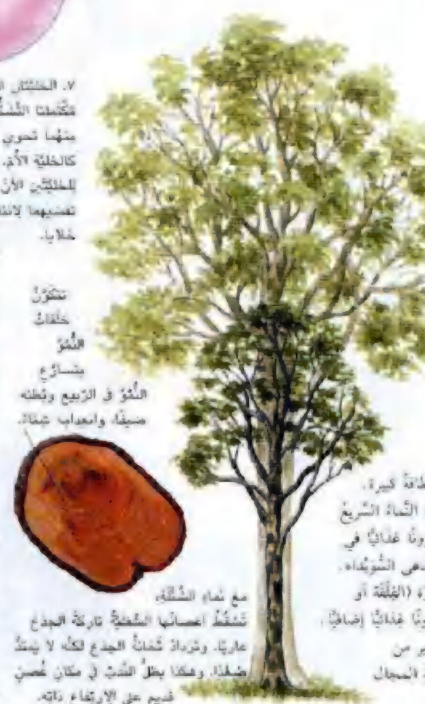 ٧. الخليتان
منهما تحوي
كالخلية الأم.
للخليتين الآن
خلايا.
تتكون
حلقات
النمو
بتسارع
النمو في الربيع وبطئه
صيفًا، وانعدامه شتاءً.
طاقة كبيرة.
النماء السريع
ونًا غذائيًا في
السويداء.
(الفلقة أو
ونًا غذائيًا إضافيًا.
ير من
المجال
مع نماء الشتلة،
تسقط أغصانها السفلية تاركة الجذع
عاريًا. وتزداد ثخانة الجذع لكنه لا يمتد
صُعُدًا. وهكذا يظل الندب في مكان غصن
قديم على الارتفاع ذاته.